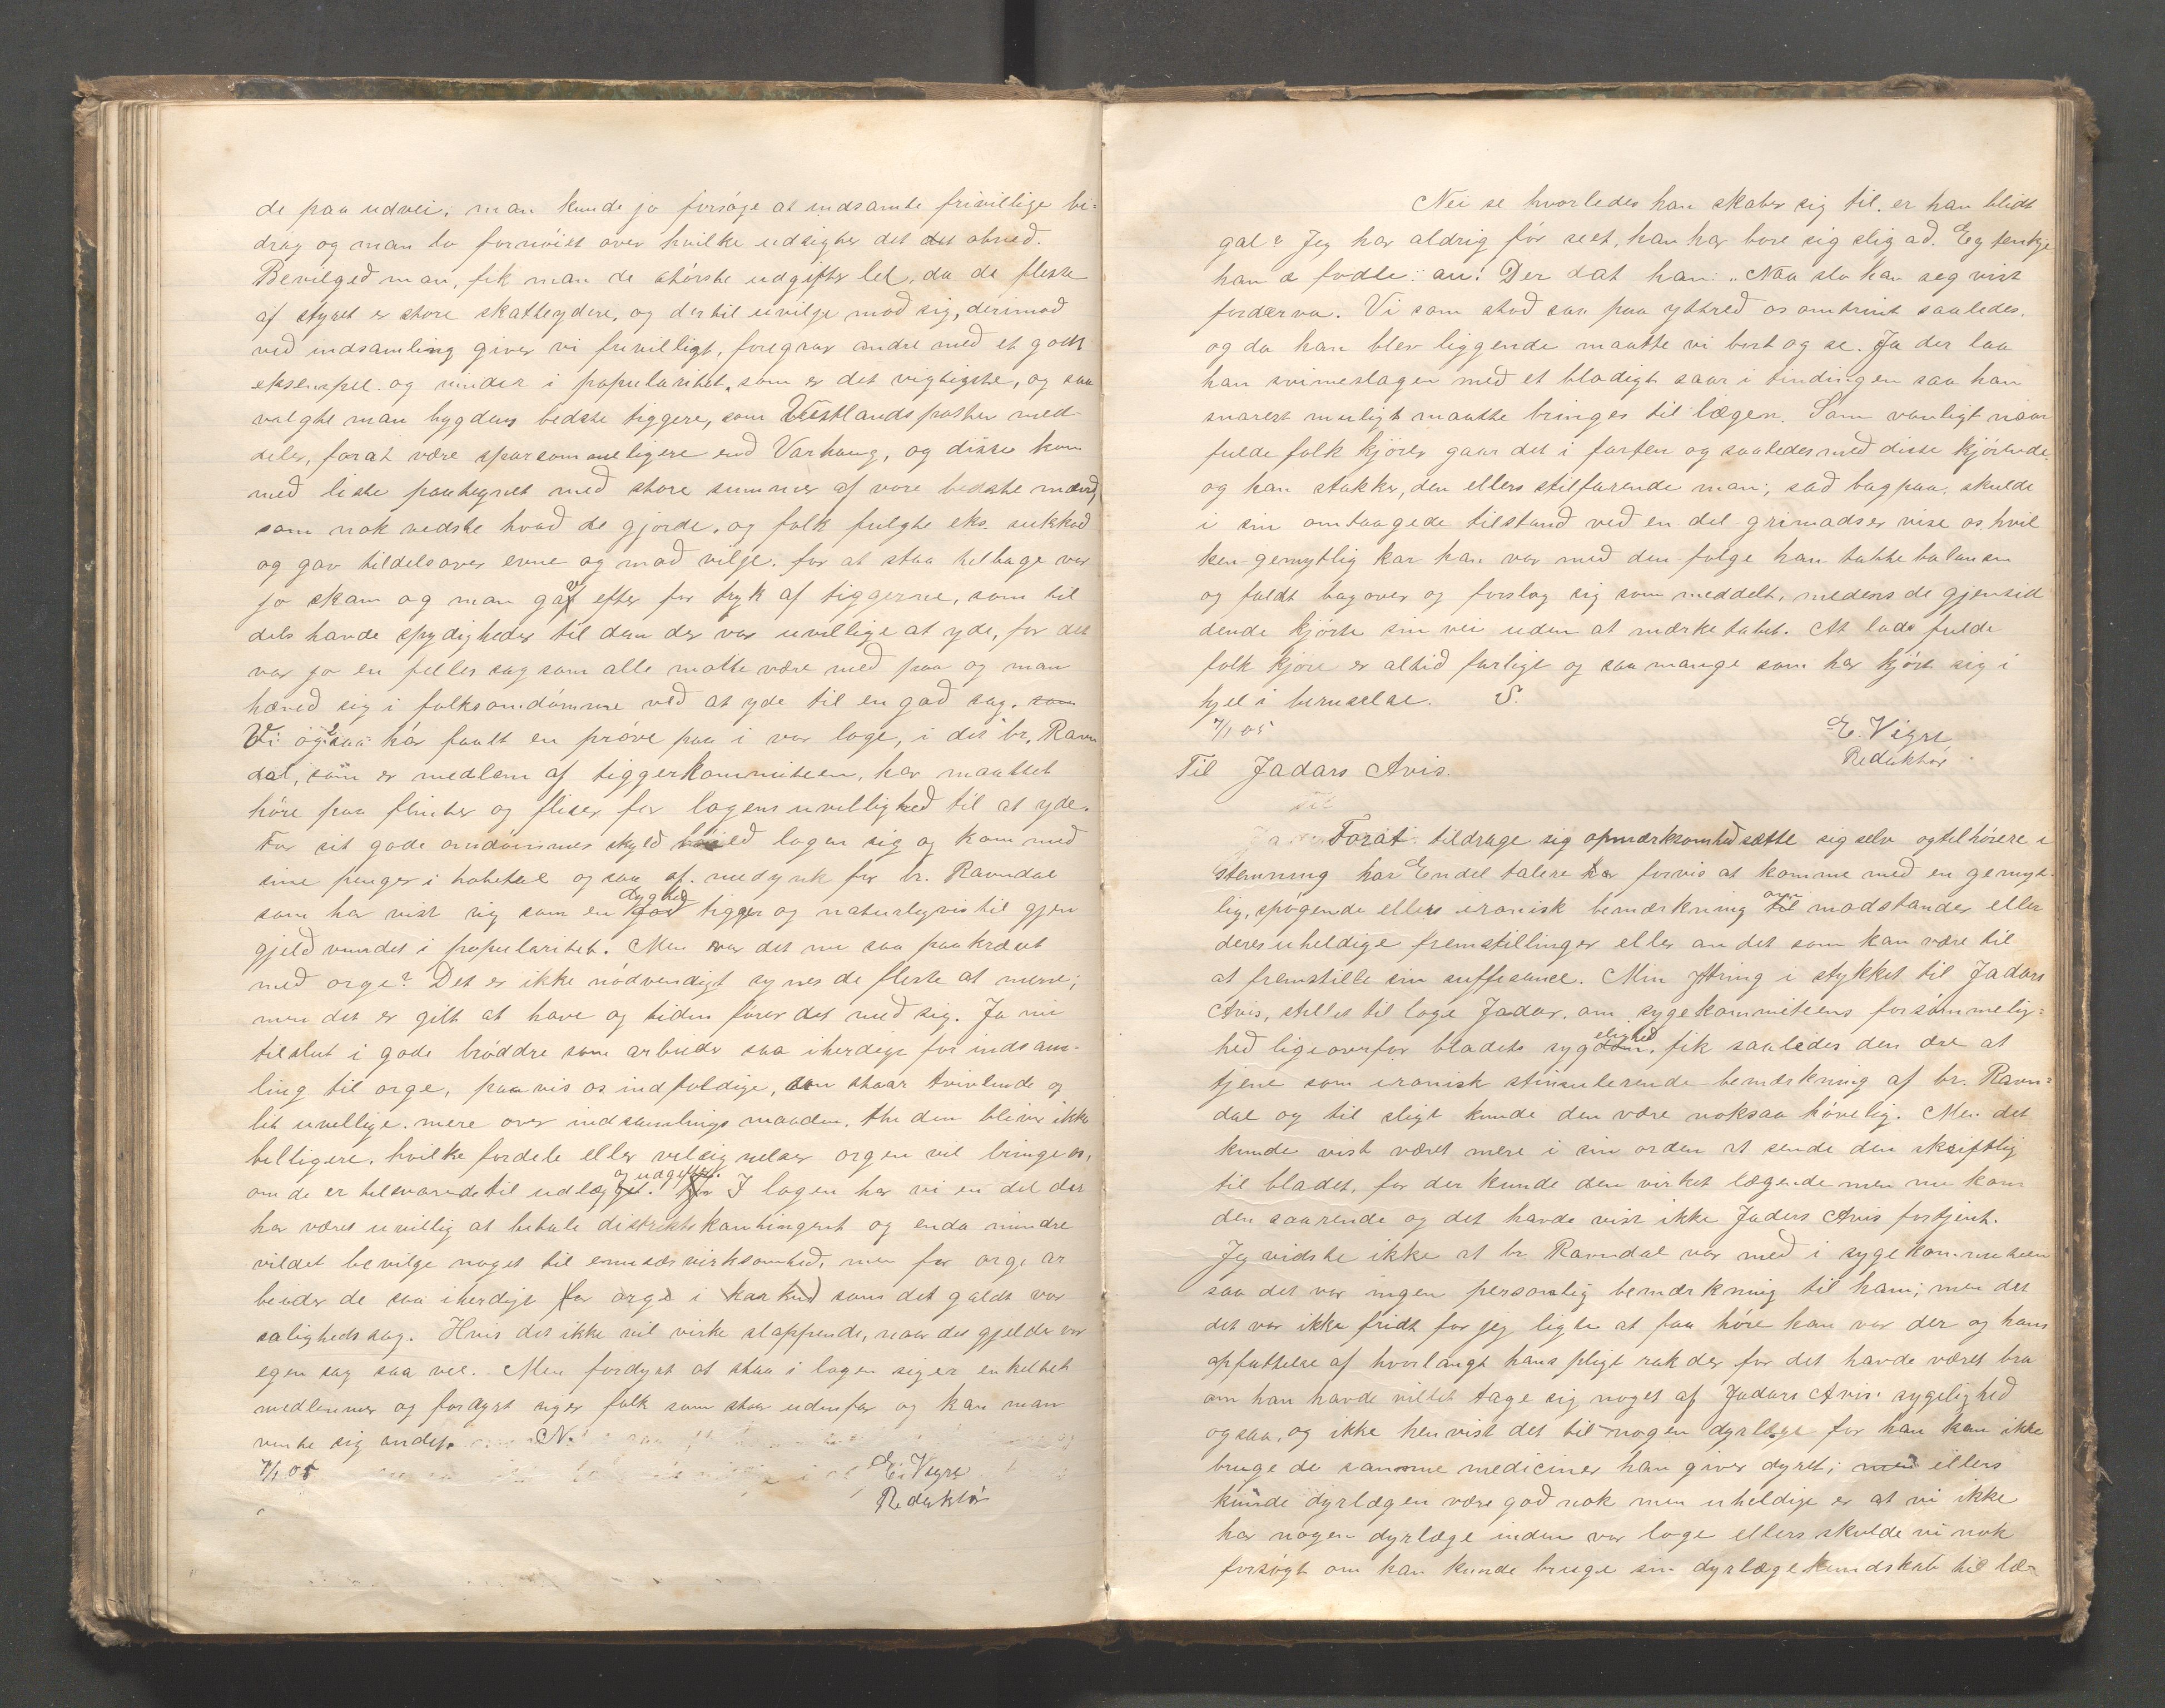 de paa udvei; man kunde jo forsøge at indsamle frivillige bi-
drag og man lo fornøiet over hvilke udsigter det det abned.
Bevilged man, fik man de største udgifter lel, da de fleste
af styret er store skatteydere, og dertil uvilje mod sig, derimod
ved indsamling giver vi frivilligt, foregaar andre med et godt
eksempel og vinder i popularitet, som er det vigtigste, og saa
valgte man bygdens bedste tiggere, som Vestlandsposten med-
deler, forat være sparsommeligere end Varhaug, og disse kom
med liste paategnet med store summer af vore bedste mænd,
som nok vedste hvad de gjorde, og folk fulgte eks. sukkod
og gav tildels over evne og mod vilje, for at staa tilbage var
jo skam og man gav efter for tryk af tiggerne, som til
dels havde spydigheder til dem der var uvillige at yde, for det
var jo en felles sag som alle motte være med paa og man
hæved sig i folksomdømme ved at yde til en god sag. som
Vi ogsaa har faalt en prøve paa i vor loge, i det br. Ravn
dal, som er medlem af tiggerkommiteen, har maattet
høre paa flinter og fliser for logens uvillighed til at yde.
For sit gode omdømmes skyld logen sig og kom med
sine penger i hobetal og saa af medynk for br. Ravndal
som har vist sig som en dygtig tigger og naturligvis til gjen
gjeld vundet i popularitet. Men var det nu saa paakrævt
med orge? Det er ikke nødvendigt synes de fleste at mene;
men det er gilt at have og tiden fører det med sig. Ja nu
tilslut i gode brøddre som arbeider saa iherdige for indsam-
ling til orge, paavis os indfoldige, som staar tvivlende og
lit uvillige mere over indsamlingsmaaden, thi den bliver ikke
billigere, hvilke fordele eller velsignelser orgen vil bringe os,
om de er tilsvarende til udlægget og udgifter. I logen har vi en del der
har været uvillig at betale distriktskontingent og enda mindre
vildet bevilge noget til emisærvirksomhed, men for orge ar
beider de saa iherdigt (for orge i kar kud) som det galdt vor
salighedssag. Hvis det ikke vil virke slappende, naar det gjelder vor
egen sag saa vel. Men fordyrt at staa i logen siger enkeltet
medlemmer og fordyrt siger folk som staar udenfor og kan man
vente sig andet. N.
7/1 05 E. Vigre
Redaktør
Nei se hvorledes han skaber sig til, er han blidt
gal? Jeg har aldrig før seet, han har bore sig slig ad. Eg tenkje
han a fodle: au! Der dat han: „Naa slo han seg vist
forderva. Vi som stod saa paa yttred os omtrint saaledes,
og da han blev liggende maatte vi bort og se. Ja der laa
han svimeslagen med et blodigt saar i tindingen saa han
snarest muligt maatte bringes til lægen. Som vanligt naar
fulde folk kjører gaar det i farten og saaledes med disse kjørende,
og han stakker, den ellers stilfarende man, sad bagpaa, skulde
i sin omtaagede tilstand ved en del grimadser vise os hvil
ken gemytlig kar han var med den følge han tabte balansen
og faldt bagover og forslog sig som meddelt, medens de gjensid
dende kjørte sin vei uden at mærke tabet. At lade fulde
folk kjøre er altid farligt og saa mange som har kjørt sig i
hjel i beruselse. S.
7/1 05 E. Vigre
Redaktør
Til Jadars Avis.
Forat tildrage sig opmærksomhed sætte sig selv og tilhørere i
stemning har Endel talere for forvis at komme med en gemyt-
lig, spøgende ellers ironisk bemærkning om modstander eller
deres uheldige fremstillinger eller andet som kan være til
at fremstille sin suffisance. Min Yttring i stykket til Jadars
Avis, stillet til loge Jadar, om sygekommiteens forsømmelig-
hed ligeoverfor bladets sygelighed, fik saaledes den ære at
tjene som ironisk stimulerende bemærkning af br. Ravn-
dal og til sligt kunde den være noksaa høvelig. Men det
kunde vist været mere i sin orden at sende den skriftlig
til bladet, for der kunde den virket lægende men nu kom
den saarende og det havde vist ikke Jaders Avis fortjent.
Jeg vidste ikke at br. Ravndal var med i sygekommiteen
saa det var ingen personlig bemærkning til ham; men det
det var ikke fridt for jeg ligte at faa høre han var der og hans
opfattelse af hvorlangt hans pligt rak der for det havde været bra
om han havde villet tage sig noget af Jadars Avis' sygelighed
ogsaa, og ikke henvist det til nogen dyrlæge for han kan ikke
bruge de samme mediciner han giver dyret; men ellers
kunde dyrlægen være god nok men uheldige er at vi ikke
har nogen dyrlæge inden vor loge ellers skulde vi nok
forsøgt om han kunde bruge sin dyrlægekundskab til læ-